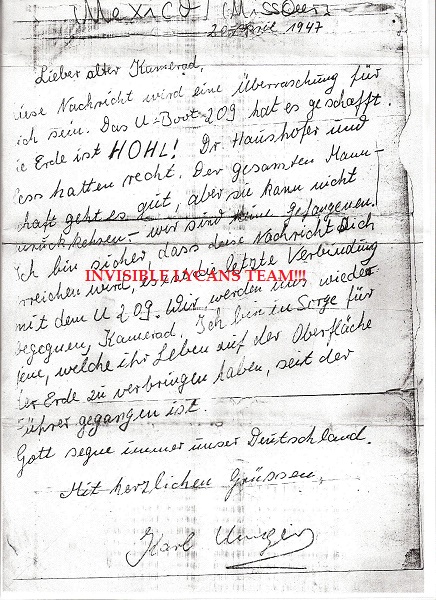 Mexico / Missouri
April 1947
Lieber alter Kamerad,
iese Nachricht wird eine Überraschung für
ich sein. Das U-Boot-209 hat es geschafft.
ie Erde ist HOHL! Dr. Haushofer und
ess hatten recht. Der gesamten Mann-
haft geht es gut, aber sie kann nicht
urückkehren. wir sind keine Gefangenen.
Ich bin sicher, dass diese Nachricht Dich
rreichen wird, es ist die letzte Verbindung
INVISIBLE IACANS TEAM!!!
mit dem U 209. Wir werden uns wieder
begegnen, Kamerad. Ich bin in Sorge für
jene, welche ihr Leben auf der Oberfläche
der Erde zu verbringen haben, seit der
Führer gegangen ist.
Gott segne immer unser Deutschland.
Mit herzlichen Grüssen,
Karl Unger